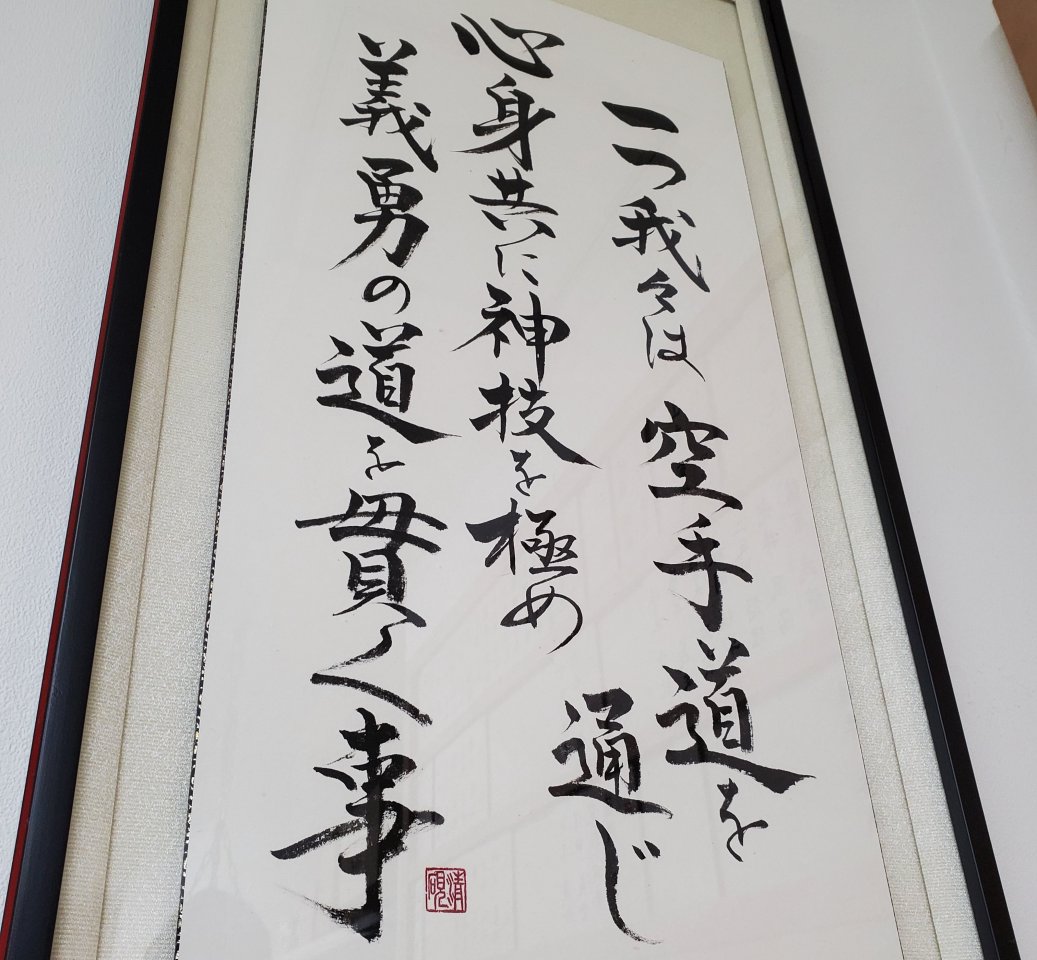 一つ我々は空手道を
通じ
心身共に神技を極め
義勇の道を貫く事
清硯